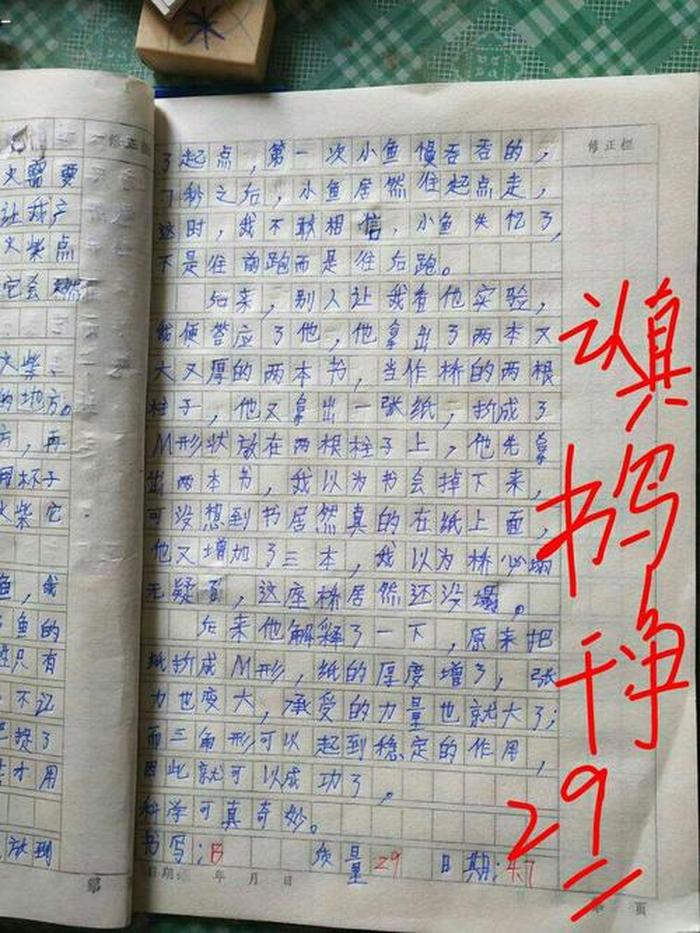 修正栏
火需要
让我产
火柴点
它会燃
火柴、
的地方。
方,再
杯子
火柴它
鱼,我
鱼的
只有
不记
才用
放到
第
修正栏
了起点,第一次小鱼慢吞吞的,
秒之后,小鱼居然往起点走,
这时,我不敢相信,小鱼失忆了,
不是往前跑而是往后跑。
后来,别人让我看他实验,
我便答应了他,他拿出了两本又
大又厚的两本书,当作桥的两根
柱子,他又拿出一张纸,折成了
M形状放在两根柱子上,他先拿
出两本书,我以为书会掉下来,
可没想到书居然真的在纸上面,
他又增加了三本,我以为桥必塌
无疑,这座桥居然还没塌。
后来他解释了一下,原来把
纸折成M形,纸的厚度增了,张
力也变大,承受的力量也就大了;
而三角形可以起到稳定的作用,
因此就可以成功了,
科学可真奇妙。
书写:B 质量29 日期:4.7
日期: 年 月 日
页
认真
书写
干净
29